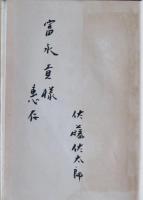 富永貢様
恵存
佐藤佐太郎